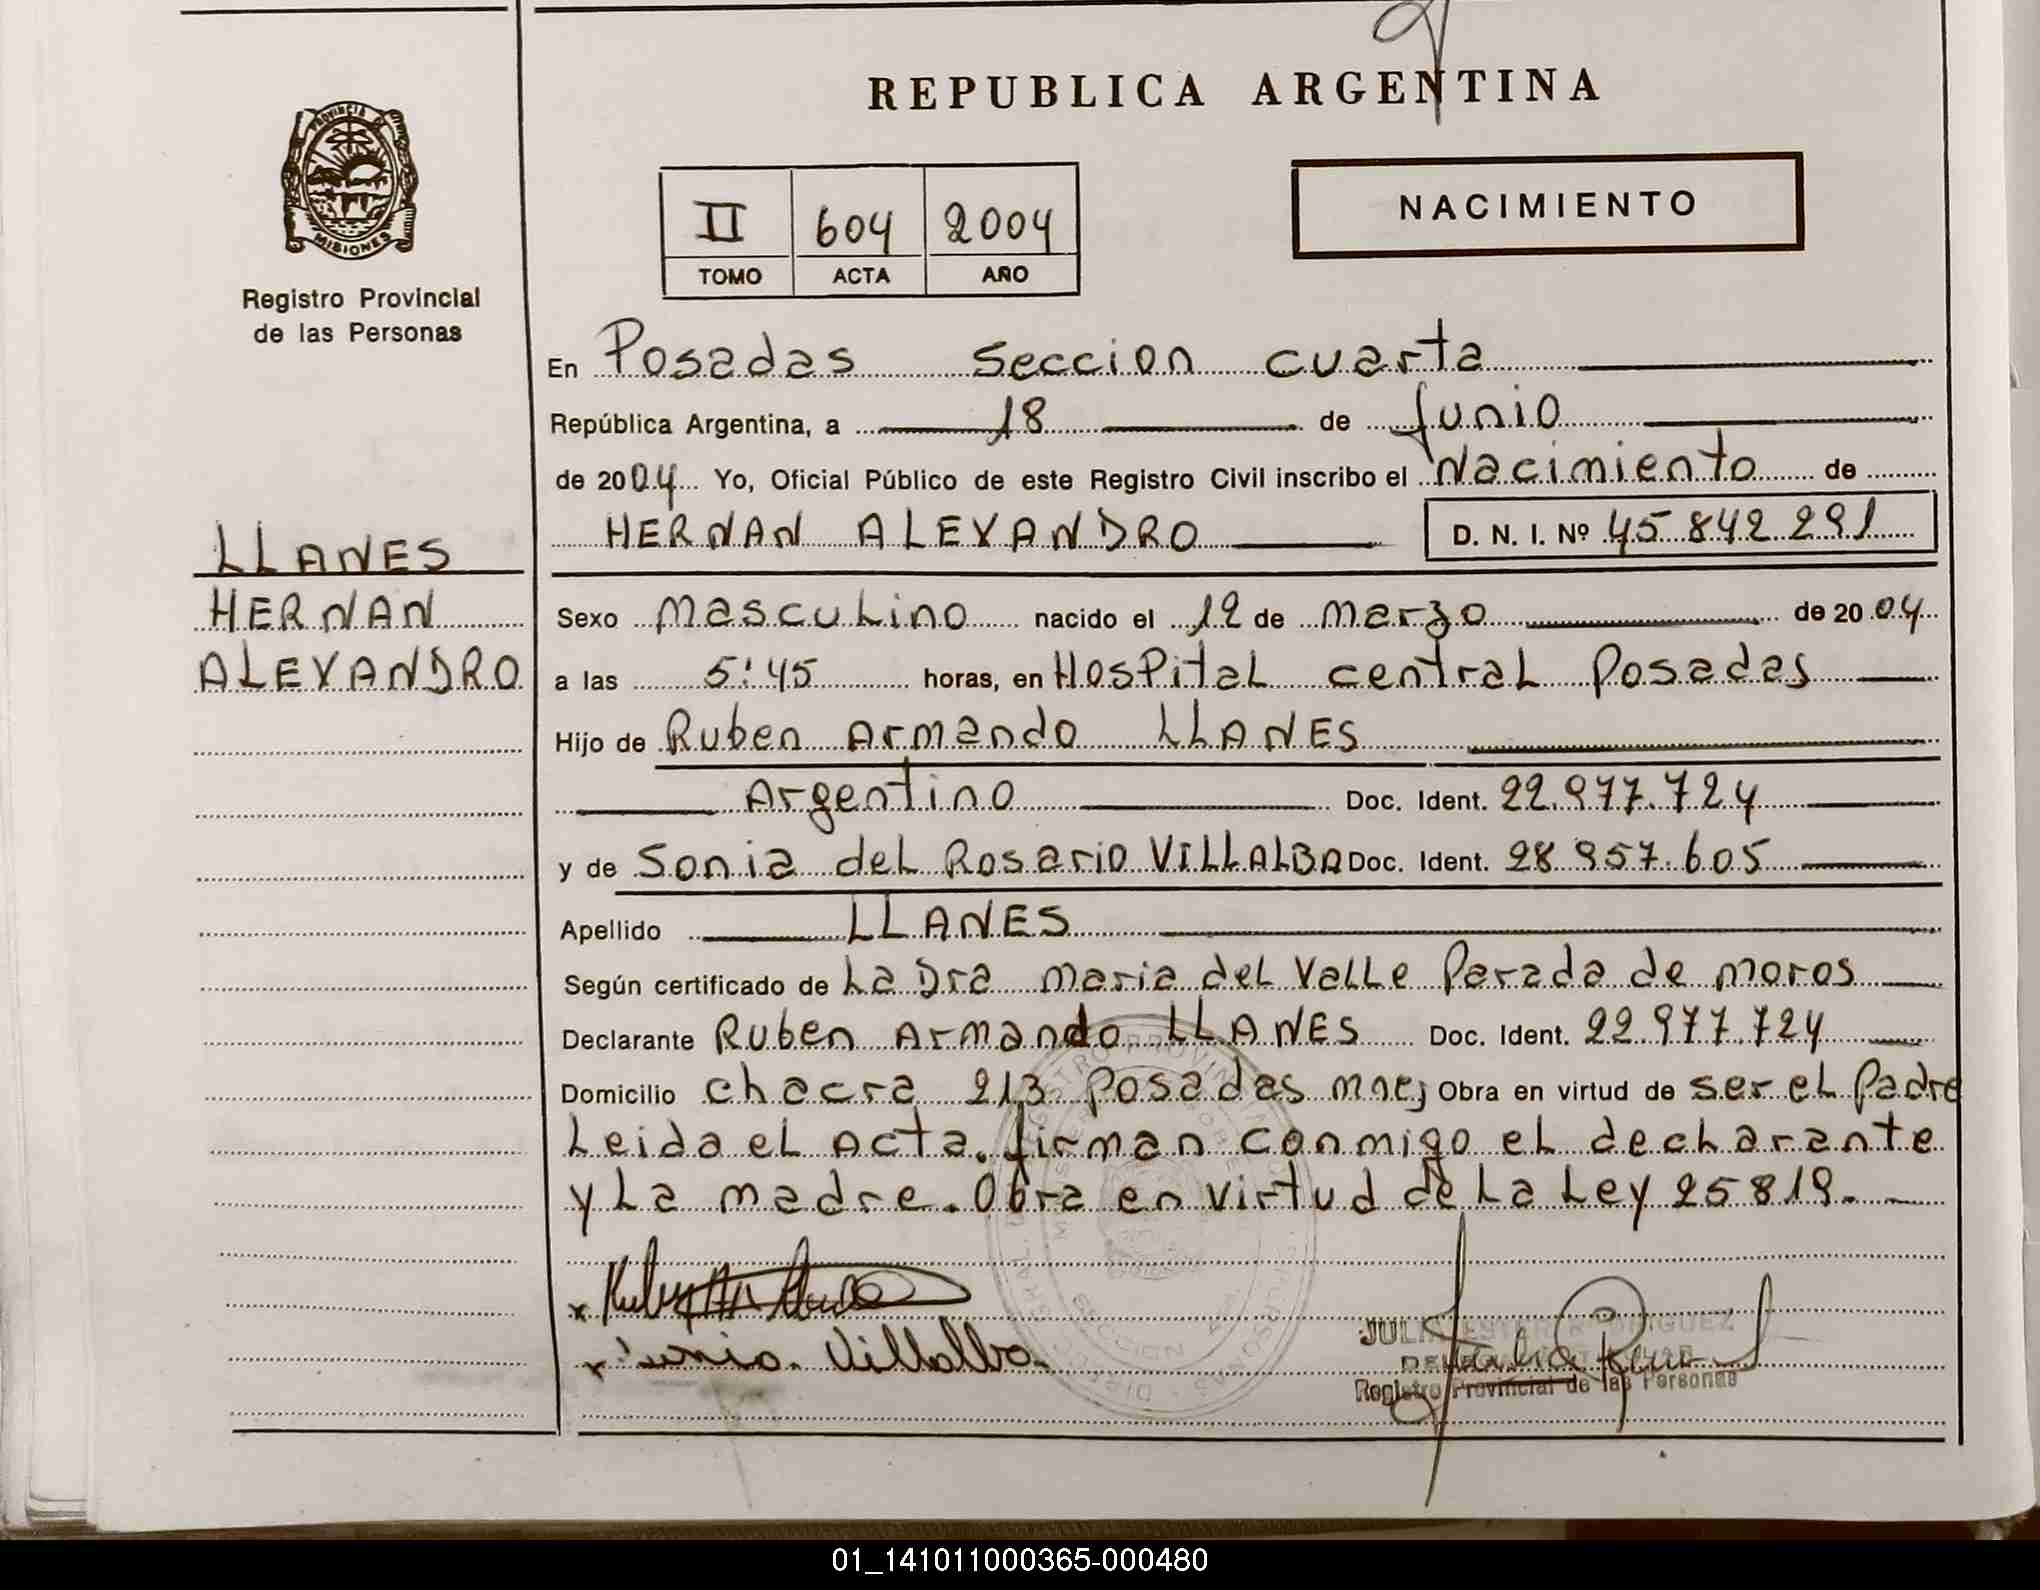 REPUBLICA ARGENTINA
PROVINCIA DE
MISIONES
Registro Provincial
de las Personas
II 604 2004
TOMO ACTA AÑO
NACIMIENTO
En Posadas seccion cuarta
República Argentina, a 18 de Junio
de 2004 Yo, Oficial Público de este Registro Civil inscribo el Nacimiento de
HERNAN ALEXANDRO D. N. I. Nº 45.842.291
LLANES
HERNAN
ALEXANDRO
Sexo Masculino nacido el 12 de marzo de 2004
a las 5:45 horas, en Hospital central Posadas
Hijo de Ruben Armando LLANES
Argentino Doc. Ident. 22.977.724
y de Sonia del Rosario VILLALBA Doc. Ident. 28.957.605
Apellido LLANES
Según certificado de La Dra maria del Valle Parada de moros
Declarante Ruben Armando LLANES Doc. Ident. 22.977.724
Domicilio chacra 213 Posadas Obra en virtud de ser el Padre
Leida el Acta. firman conmigo el declarante
y La madre. Obra en virtud de La Ley 25819.
Sonia Villalba
Registro Provincial de las Personas
01_141011000365-000480